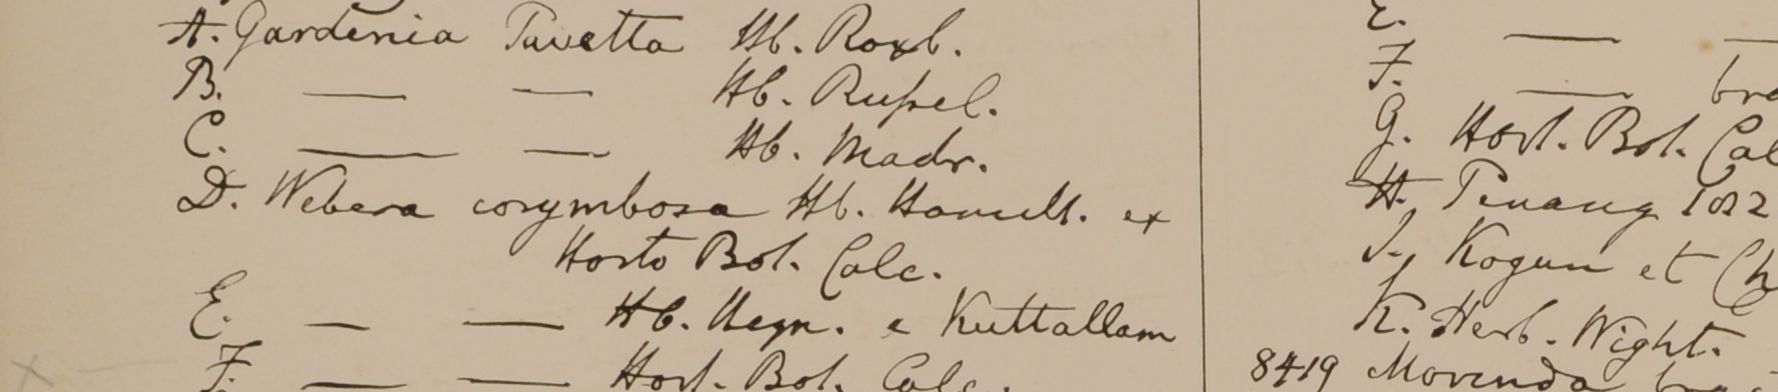 A. Gardenia Pavetta Hb. Roxb.
B. — — Hb. Russel.
C. — — Hb. Madr.
D. Webera corymbosa Hb. Hamilt. ex
Horto Bot. Calc.
E. — — Hb. Heyn. e Kuttallam
F. — — Hort. Bot. Calc.
E. — —
F. — bra
G. Hort. Bot. Cal
H. Penang 1822
I. Kogun et Ch
K. Herb. Wight.
8419 Morinda